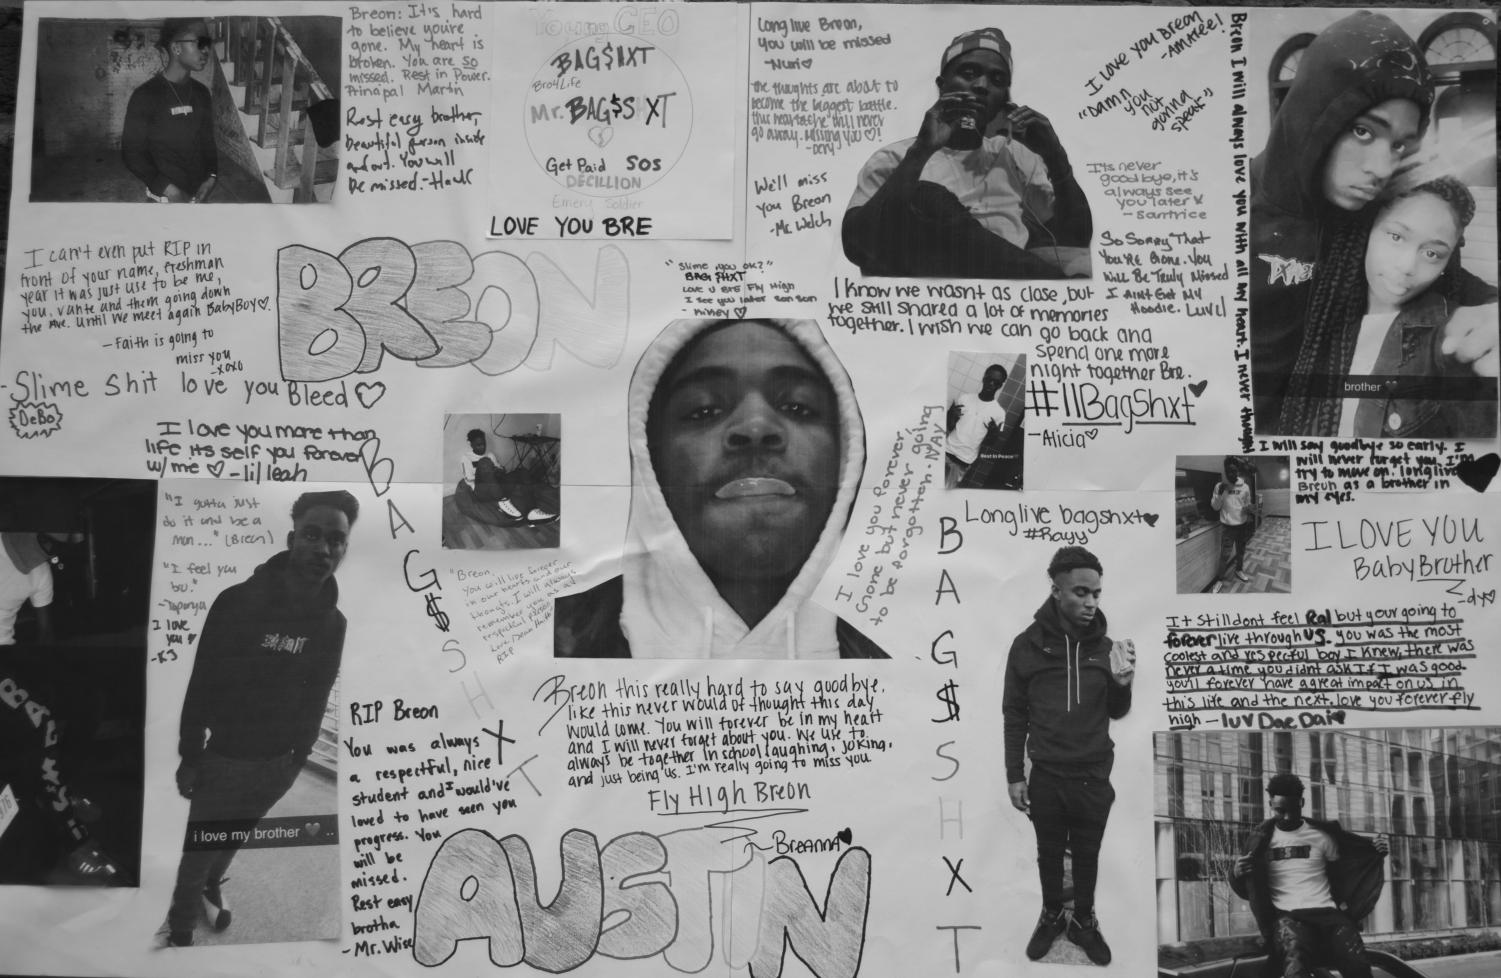 Breon: It's hard
to believe you're
gone. My heart is
broken. You are so
missed. Rest in Power.
Principal Martin
Rest easy brother,
beautiful person inside
and out. You will
be missed.
Young CEO
BAG$HXT
Bro4Life
Mr. BAG$SHXT
Get Paid SOS
DECILLION
Emery Soldier
LOVE YOU BRE
Long live Breon,
you will be missed
-Nuri♡
the thoughts are about to
become the biggest battle.
this heartache will never
go away. Missing you ♡!
We'll miss
you Breon
-Mr. Welch
I love you Breon
"DAMN
you
not
gunna
speak"
It's never
goodbye, it's
always see
you later
So Sorry That
You're Gone. You
Will Be Truly Missed
I Aint Get My
Hoodie. Luv Ll
Breon I will always love you with all my heart. I never thought
I will say goodbye so early. I
will never forget you. I'm
try to move on. longlive
Breon as a brother in
my eyes.
brother
I can't even put RIP in
front of your name, freshman
year it was just use to be me,
you, vante and them going down
the Ave. Until we meet again BabyBoy♡.
-Faith is going to
miss you
-xoxo
BREON
"Slime you ok?"
BAG $HXT
Love U Bre Fly High
I see you later son son
I know we wasnt as close, but
we still shared a lot of memories
together. I wish we can go back and
spend one more
night together Bre.
#llBagShxt♥
-Alicia♡
Rest In Peace
-Slime shit love you Bleed♡
DeBo
I love you more than
life its self you forever
w/me ♡ -lil leah
BAG$SHXT
"I gotta just
do it and be a
man..." (Breon)
"I feel you
bo."
I love
you
-KJ
"Breon,
You will live forever
in our hearts and our
thougts. I will always
remember you as a
respectful person.
RIP
I love you forever,
Gone but never going
to be forgotten. -NAY
BAG$SHXT
Longlive bagshxt♥
#Rayy
I LOVE YOU
Baby Brother
-dy♡
It still dont feel Ral but your going to
forever live through US. you was the most
coolest and respectful boy I knew, there was
never a time you didnt ask If I was good
you'll forever have a great impact on us in
this life and the next. love you forever fly
high - luv Dae Dai♥
i love my brother ..
RIP Breon
You was always
a respectful, nice
student and I would've
loved to have seen you
progress. You
will be
missed.
Rest easy
brotha
-Mr. Wise
Breon this really hard to say goodbye,
like this never would of thought this day
would come. You will forever be in my heart
and I will never forget about you. We use to
always be together in school laughing, joking,
and just being us. I'm really going to miss you
Fly High Breon
-Breanna♥
AUSTIN